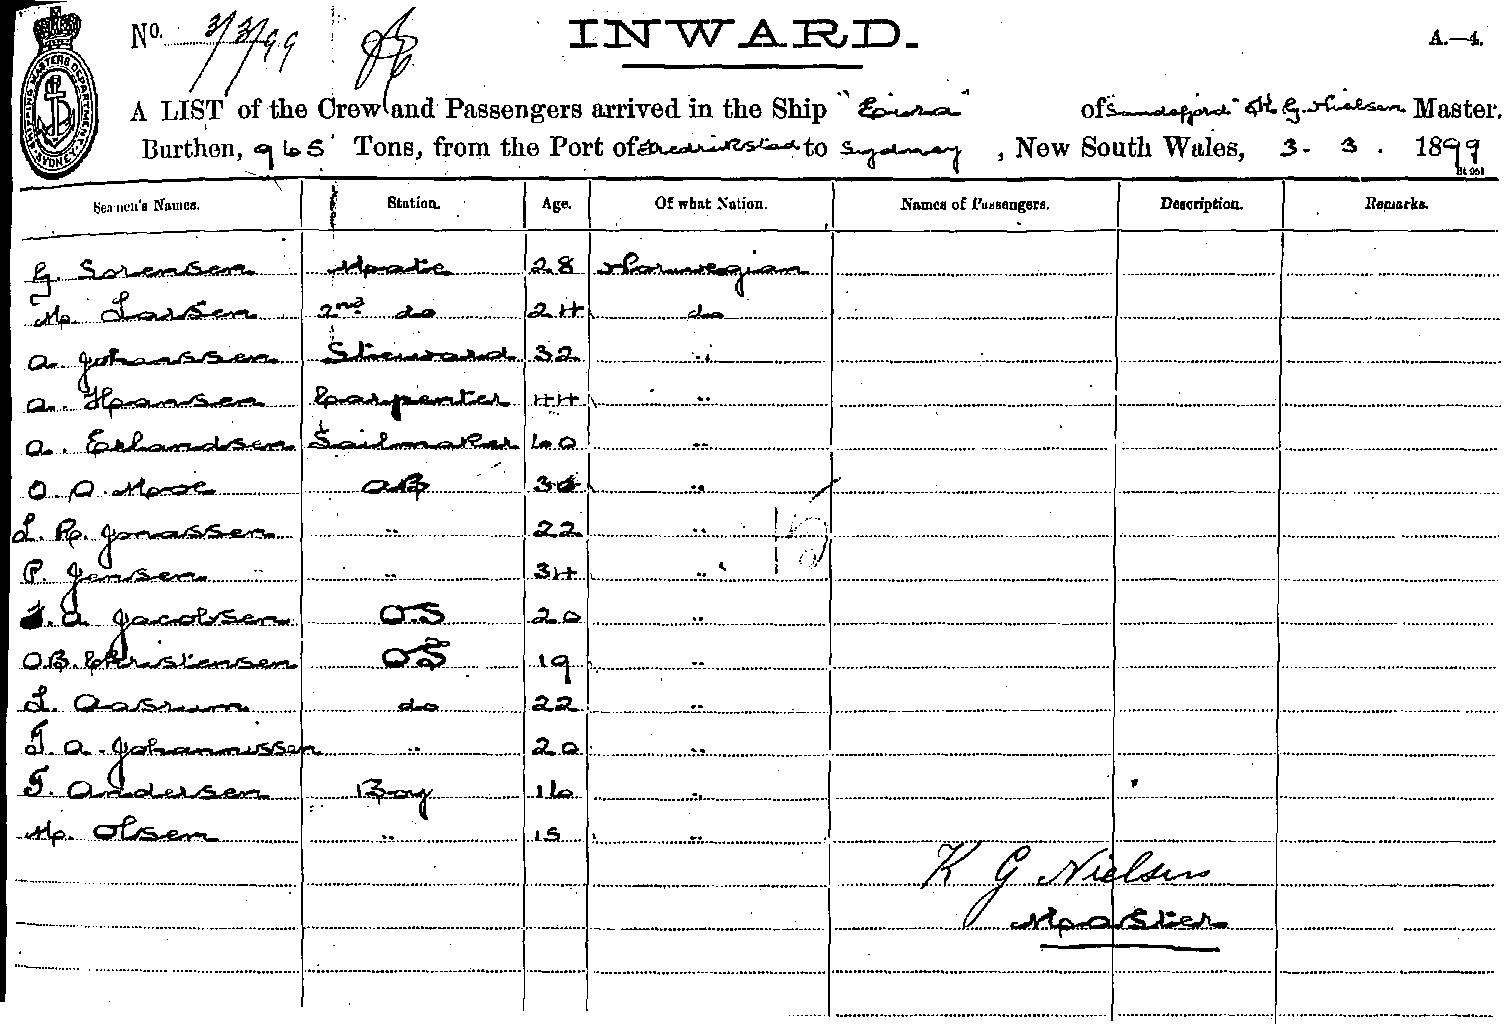 No. 3/3/99
INWARD.
A.—4.
A LIST of the Crew and Passengers arrived in the Ship "Eira" of Sandefjord K G. Nielsen Master.
Burthen, 965 Tons, from the Port of Fredrikstad to Sydney, New South Wales, 3 - 3. 1899
Seamen's Names. Station. Age. Of what Nation. Names of Passengers. Description. Remarks.
G. Sorensen Mate 28 Norwegian
M. Larsen 2nd do 24 do
A. Johanssen Steward 32 "
A. Hansen Carpenter 44 "
A. Erlandsen Sailmaker 60 "
O. O. Moe AB "
L. R. Jonassen " 22 "
P. Jensen " 34 "
A. Jacobsen O.S 20 "
O.B. Christensen OS 19 "
L. Aasrum do 22 "
T. A. Johannissen " 20 "
T. Andersen Boy 16 "
M. Olsen " 15 "
K G Nielsen
Master